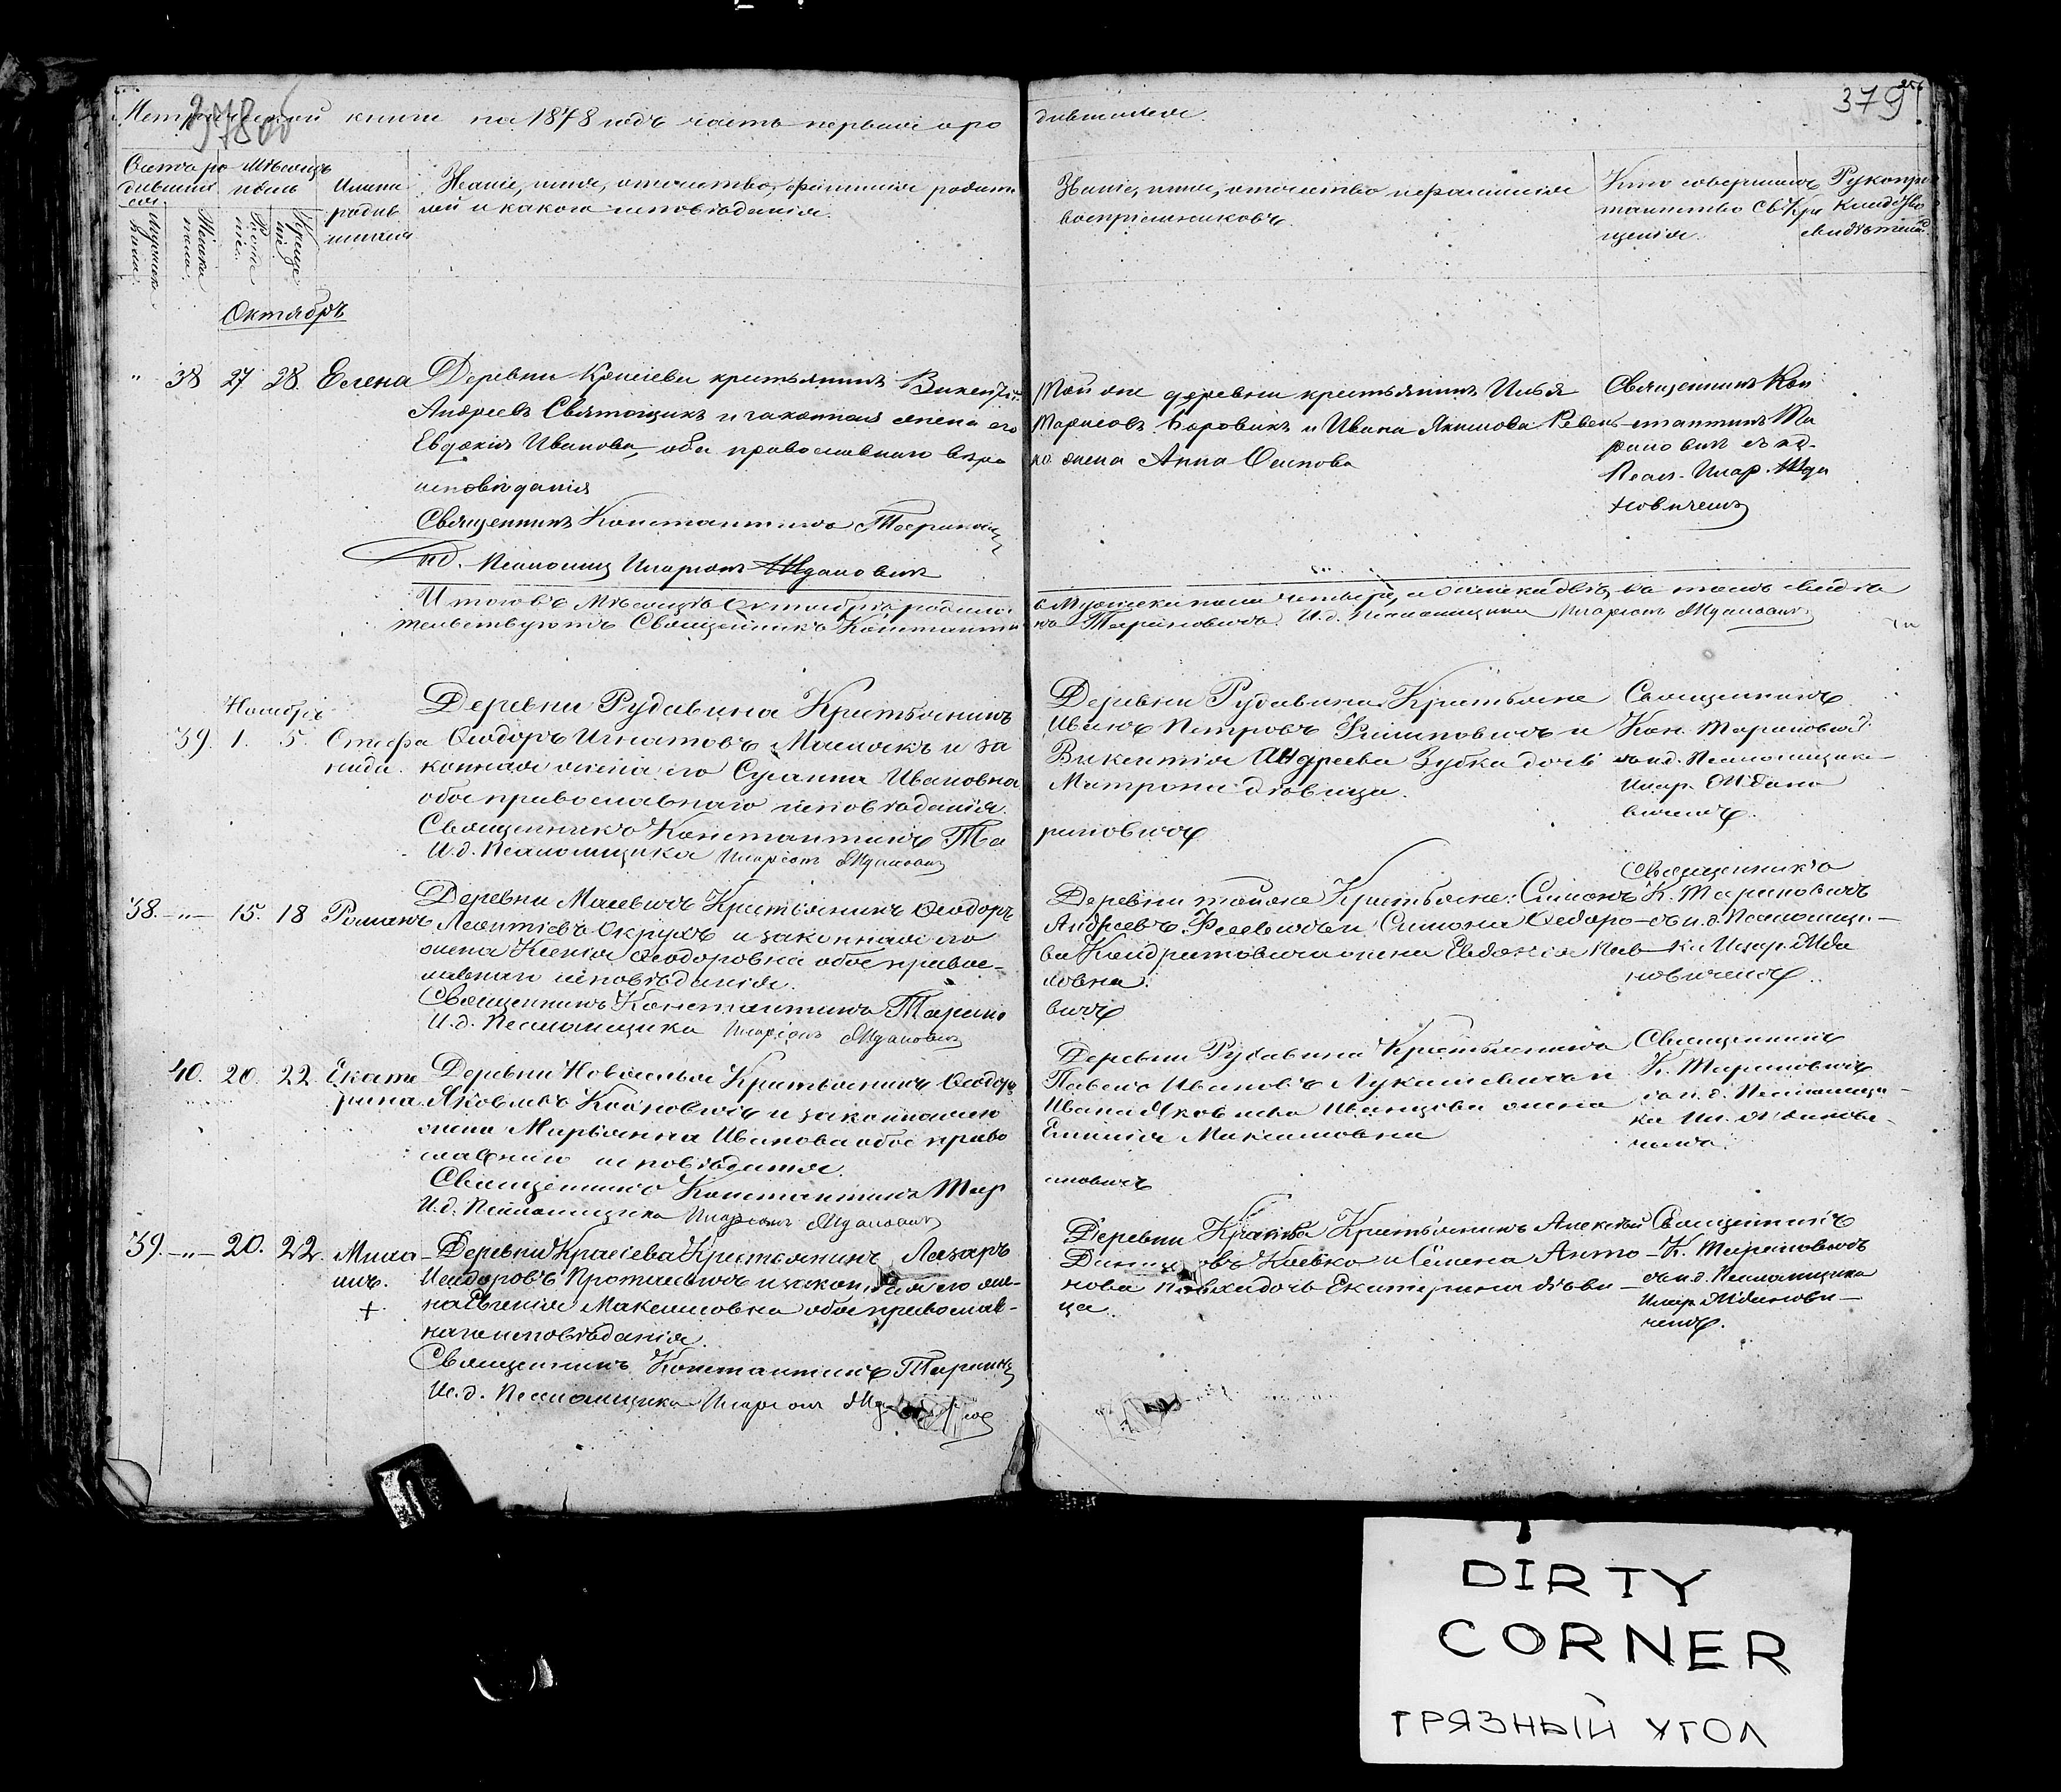 Метрической книги на 1878 годъ часть первая о ро
дившихся.
378об
379
Счетъ ро
дившихся
Мѣсяцъ
и день
Имена
родив
шихся
Званіе, имя, отчество, фамилія родите
лей и какого исповѣданія.
Званіе, имя, отчество и фамилія
воспріемниковъ.
Кто совершалъ
таинство Св. Кре
щенія.
Рукопри
Октябрь
" 38 27 28 Елена
Деревни Красіева крестьянинъ Викентій
Андреевъ Святощикъ и законная жена его
Евдокія Иванова, оба православнаго вѣро
исповѣданія
Священникъ Константинъ Тарино
и.д. Псаломщ. Иларіонъ Ждановичъ
Той же деревни крестьянинъ Илья
Марковъ Боровикъ и Ивана Якимова Ревень
ко жена Анна Осипова
Священникъ Кон
стантинъ Та
риновичъ съ и.д.
Псал. Илар. Жда
новичемъ
Итого въ мѣсяцѣ Октябрѣ родило
сь мужеска пола четыре, а женска двѣ, въ томъ свидѣ
тельствуютъ Священникъ Константи
нъ Тариновичъ. И.д. Псаломщика Иларіонъ Ждановичъ
Ноябрь
39. 1. 5. Стефа
нида.
Деревни Рудавина Крестьянинъ
Ѳеодоръ Игнатовъ и за
конная жена его Сусанна Ивановна
обое православнаго исповѣданія.
Священникъ Константинъ Та
риновичъ
И.д. Псаломщика Иларіонъ Ждановичъ
Деревни Рудавина Крестьяне
Иванъ Петровъ Филиповичъ и
Викентія Андреева Зубка дочь
Матрона дѣвица.
Священникъ
Кон. Тариновичъ
съ и.д. Псаломщика
Илар. Ждано
вичемъ.
38. — " — 15. 18 Романъ
Деревни Малевичъ Крестьянинъ Ѳеодоръ
Леонтіевъ Окрухъ и законная его
жена Ксенія Ѳеодоровна обое право-
славнаго исповѣданія.
Священникъ Константинъ Тарино
вичъ
И.д. Псаломщика Иларіонъ Ждановичъ
Деревни той же Крестьяне: Симонъ
Андреевъ и Симона Ѳедоро-
ва Кондратовича жена Евдокія Пав-
ловна.
Священникъ
К. Тариновичъ
съ и.д. Псаломщи-
ка Илар. Жда
новичемъ.
40. 20. 22. Екате
рина.
Деревни Новоселья Крестьянинъ Ѳеодоръ
Яковлевъ и законная его
жена Марьянна Иванова обое право
славнаго исповѣданія.
Священникъ Константинъ Тар
иновичъ
И.д. Псаломщика Иларіонъ Ждановичъ
Деревни Рудавина Крестьянинъ
Павелъ Ивановъ Лукашевичъ и
Ивана Яковлева Иванцова жена
Емилія Максимовна
Священникъ
К. Тариновичъ
съ и.д. Псаломщи-
ка Ил. Ждинови-
чемъ.
39. — " — 20. 22. Миха
илъ.
+
Деревни Красіева Крестьянинъ Лазарь
Исидоровъ и законная его же-
на Евгенія Максимовна обое православ-
наго исповѣданія.
Священникъ Константинъ Тарин
И.д. Псаломщика Иларіонъ
Деревни Крестьянинъ Алексѣй
и Семена Анто-
нова дочь Екатерина дѣви-
ца.
Священникъ
К. Тариновичъ
съ и.д. Псаломщика
Илар. Жданови-
чемъ.
DIRTY
CORNER
ГРЯЗНЫЙ УГОЛ